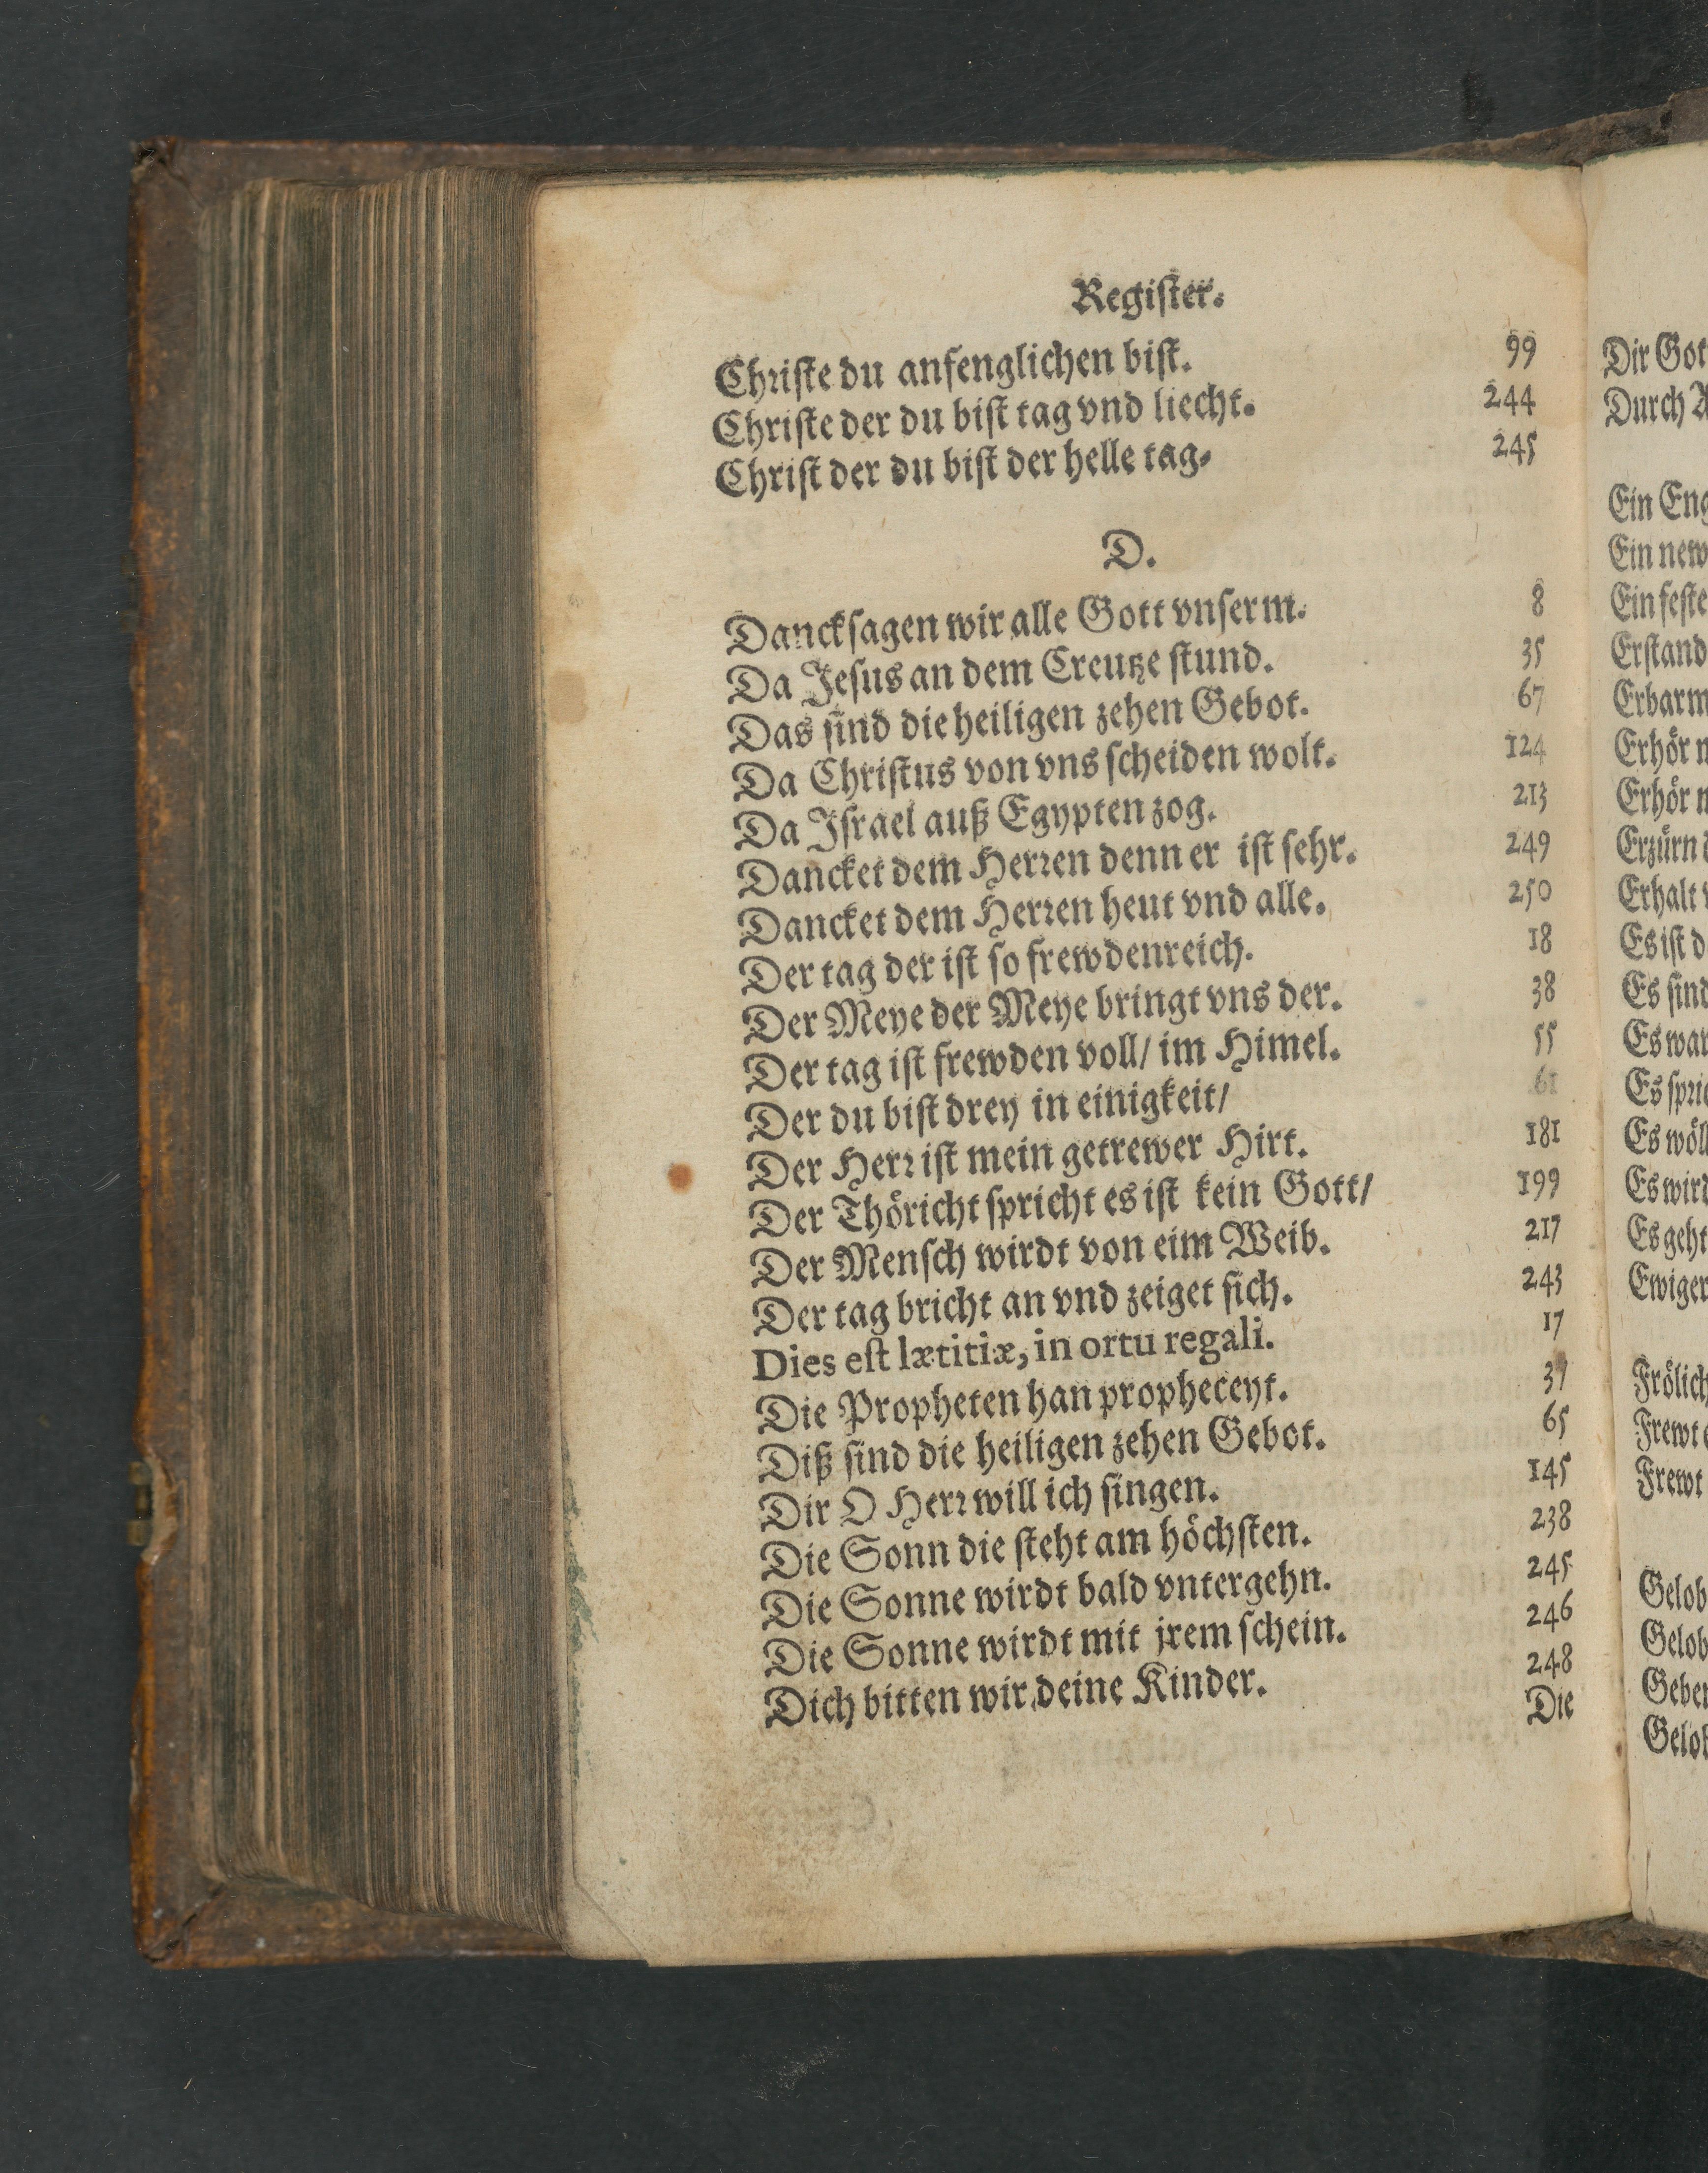 Register.
Christe du anfenglichen bist. 99
Christe der du bist tag vnd liecht. 244
Christ der du bist der helle tag. 245
D.
Dancksagen wir alle Gott vnserm. 8
Da Jesus an dem Creutze stund. 35
Das sind die heiligen zehen Gebot. 67
Da Christus von vns scheiden wolt. 124
Da Israel auß Egypten zog. 213
Dancket dem Herren denn er ist sehr. 249
Dancket dem Herren heut vnd alle. 250
Der tag der ist so frewdenreich. 18
Der Meye der Meye bringt vns der. 38
Der tag ist frewden voll/ im Himel. 55
Der du bist drey in einigkeit/ 61
Der Herr ist mein getrewer Hirt. 181
Der Thöricht spricht es ist kein Gott/ 199
Der Mensch wirdt von eim Weib. 217
Der tag bricht an vnd zeiget sich. 243
Dies est lætitiæ, in ortu regali. 17
Die Propheten han propheceyt. 37
Diß sind die heiligen zehen Gebot. 65
Dir O Herr will ich singen. 145
Die Sonn die steht am höchsten. 238
Die Sonne wirdt bald vntergehn. 245
Die Sonne wirdt mit jrem schein. 246
Dich bitten wir deine Kinder. 248
Die
Dir Got
Durch A
Ein Eng
Ein new
Ein feste
Erstand
Erbarm
Erhör m
Erhör m
Erzürn d
Erhalt v
Es ist d
Es sind
Es war
Es spric
Es wöll
Es wird
Es geht
Ewiger
Frölich
Frewt e
Frewt
Gelob
Gelob
Geben
Gelob